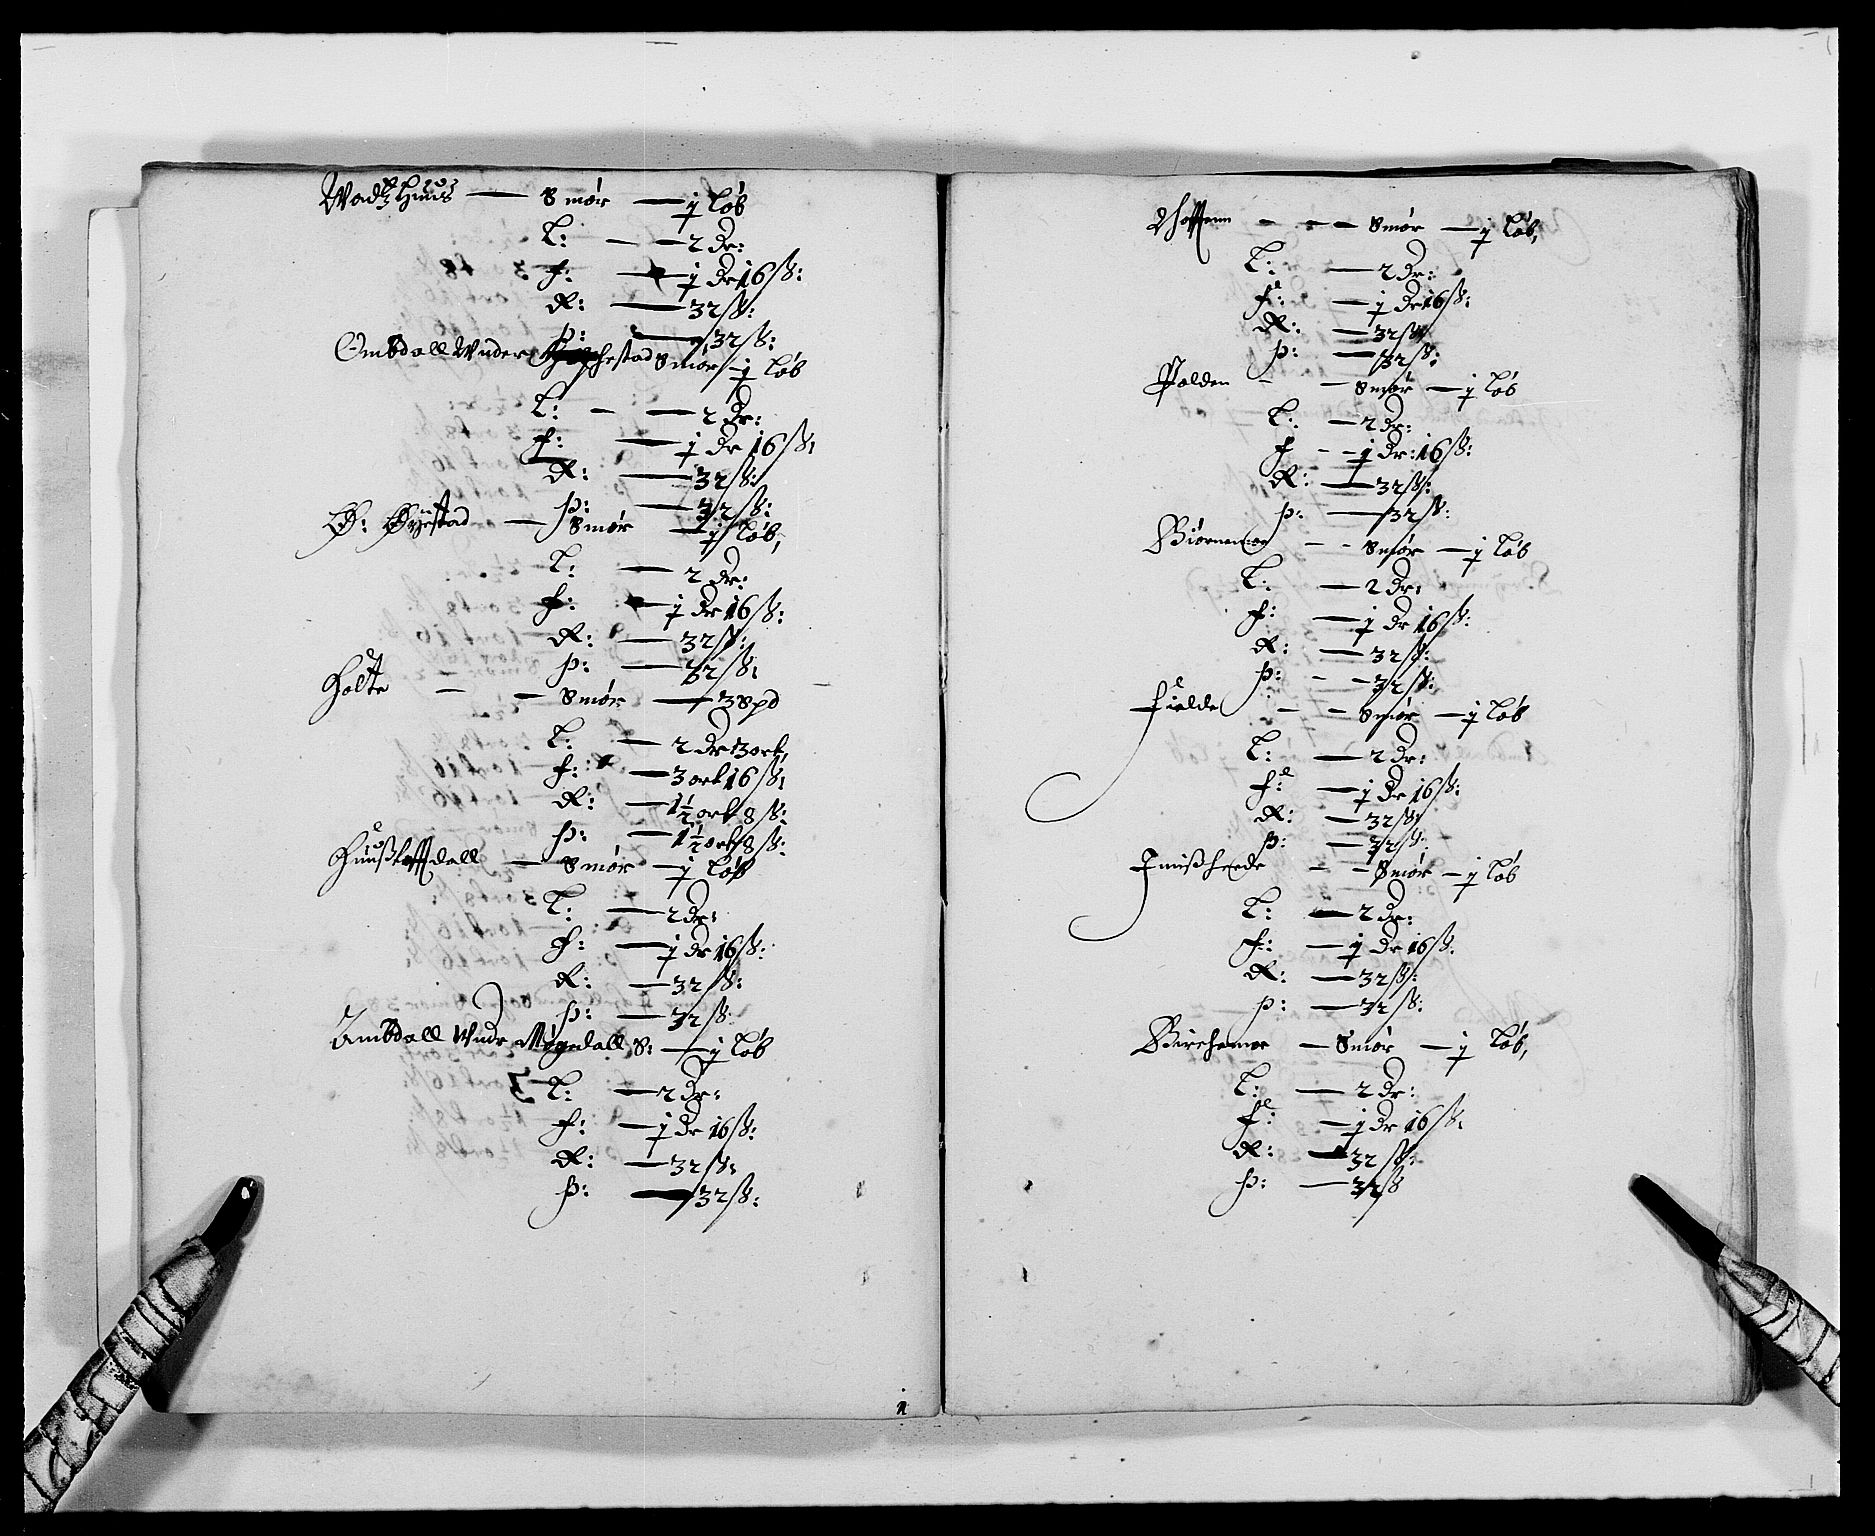 Wadtzhuus — Smør — j Løb
L: — 2 Dr:
f: — j Dr 16 ß:
R: — 32 ß:
þ: — 32 ß:
Ombdall Wnder Smør — j Løb
L: — 2 Dr:
f: — j Dr 16 ß:
R: — 32 ß:
þ: — 32 ß:
Ø: Øÿestad — Smør — j Løb,
L: — 2 Dr:
f: — j Dr 16 ß:
R: — 32 ß:
þ: — 32 ß:
Holte — Smør — 3 Spd
L: — 2 Dr 3 ort,
f: — 3 ort 16 ß:
R: — 1½ ort 8 ß:
þ: — 1½ ort 8 ß:
Smør — j Løb
L: — 2 Dr:
f: — j Dr 16 ß:
R: — 32 ß:
þ: — 32 ß:
Ombdall Wndr Møgedall S: — j Løb
L: — 2 Dr:
f: — j Dr 16 ß:
R: — 32 ß:
þ: — 32 ß:
Smør — j Løb,
L: — 2 Dr:
f: — j Dr 16 ß:
R: — 32 ß:
þ: — 32 ß:
Polden — Smør — j Løb
L: — 2 Dr:
f — j Dr: 16 ß:
R: — 32 ß:
þ: — 32 ß:
Biørnemoe — Smør — j Løb
L: — 2 Dr:
f: — j Dr 16 ß:
R: — 32 ß:
þ: — 32 ß:
Fielde — Smør — j Løb
L: — 2 Dr:
f: — j Dr 16 ß:
R: — 32 ß:
þ: — 32 ß:
Imißheede — Smør — j Løb
L: — 2 Dr:
f: — j Dr 16 ß:
R: — 32 ß:
þ: — 32 ß:
Birchemoe — Smør — j Løb,
L: — 2 Dr:
f: — j Dr 16 ß:
R: — 32 ß:
þ: — 32 ß